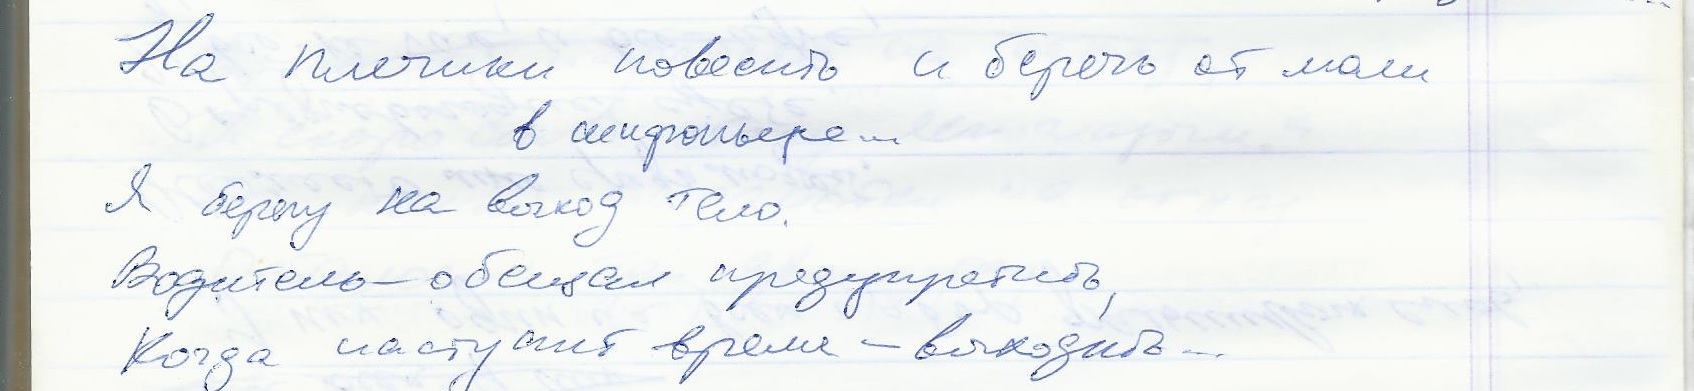 На плечики повесить и беречь от моли
в шифоньере...
Я берегу на выход тело.
Водитель – обещал предупредить,
Когда наступит время – выходить...